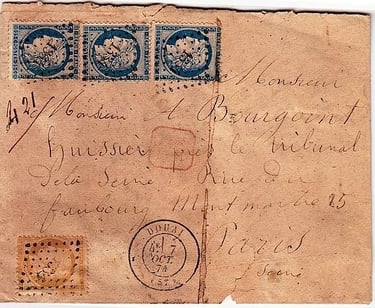 Monsieur
Monsieur A Bourgoint
huissier près le tribunal
de la Seine, Rue du
faubourg Montmartre 25
Paris
Seine
21
DOUAI
7
OCT.
74
(57)